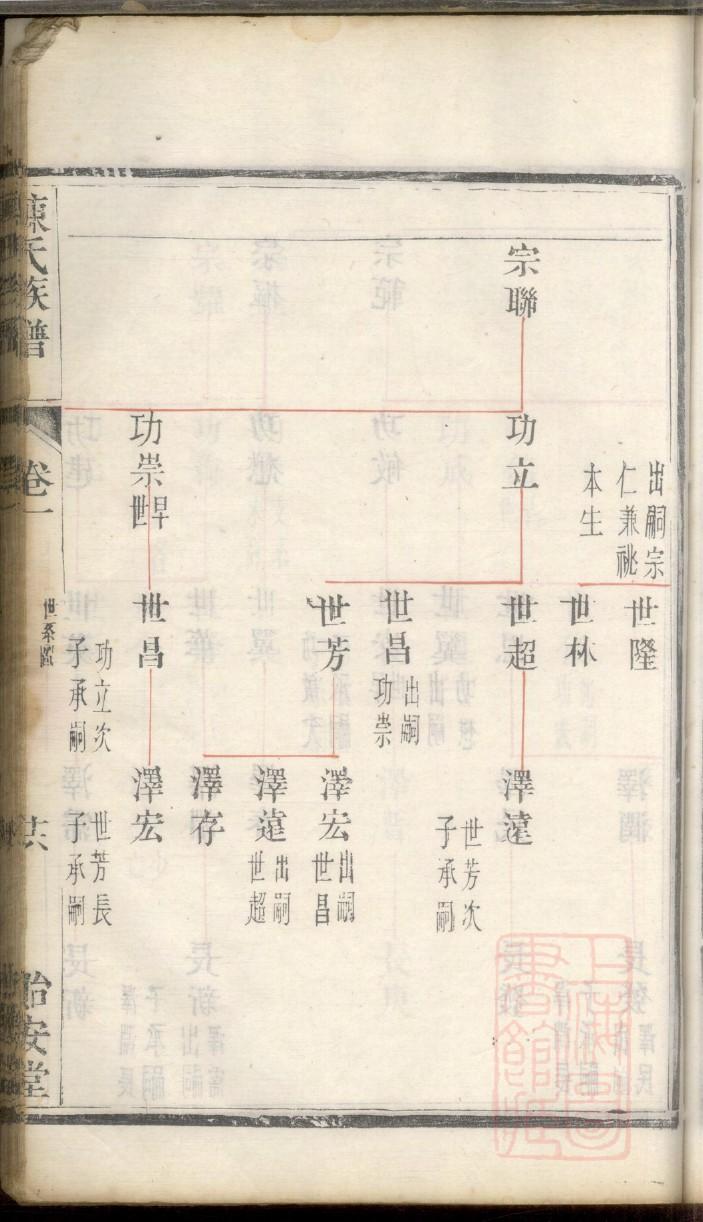 宗聯
出嗣宗
仁兼祧
本生
功立
功崇
早世
世隆
世林
世超
世昌
出嗣
功崇
世芳
世昌
功立次
子承嗣
澤遠
世芳次
子承嗣
澤宏
出嗣
世昌
澤遠
出嗣
世超
澤存
澤宏
世芳長
子承嗣
陳氏族譜
卷一
世系圖
共
怡安堂
上海圖書館藏